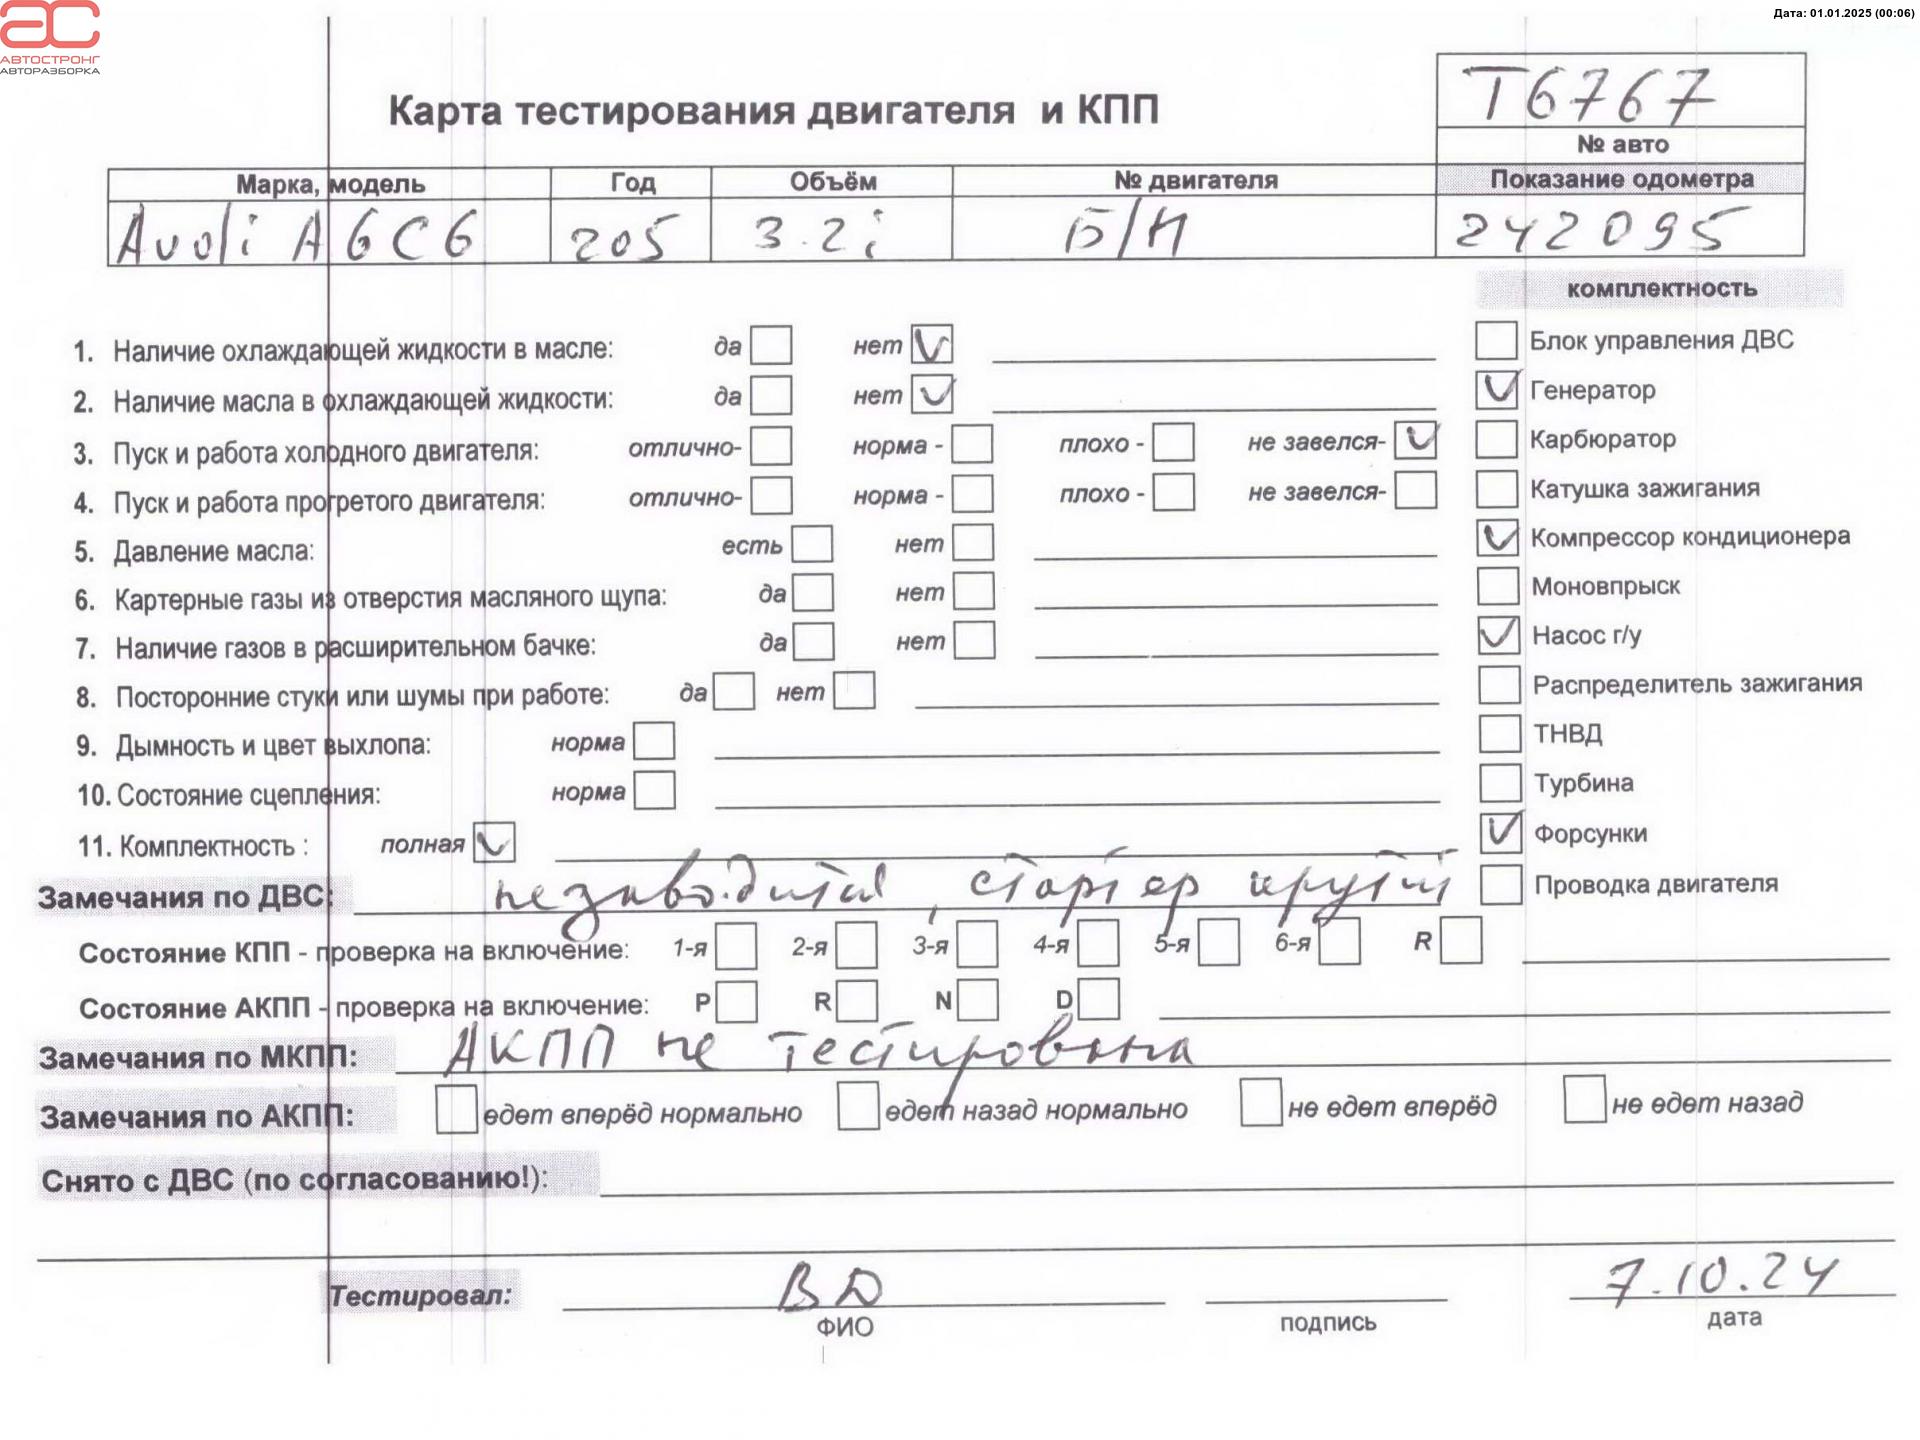 Дата: 01.01.2025 (00:06)
АС
АВТОСТРОНГ
АВТОРАЗБОРКА
Карта тестирования двигателя и КПП
Т6767
№ авто
Марка, модель Год Объём № двигателя Показание одометра
Audi A6C6 205 3.2i Б/Н 242095
комплектность
1. Наличие охлаждающей жидкости в масле: да нет
Блок управления ДВС
2. Наличие масла в охлаждающей жидкости: да нет
Генератор
3. Пуск и работа холодного двигателя: отлично- норма - плохо - не завелся-
Карбюратор
4. Пуск и работа прогретого двигателя: отлично- норма - плохо - не завелся-
Катушка зажигания
5. Давление масла: есть нет
Компрессор кондиционера
6. Картерные газы из отверстия масляного щупа: да нет
Моновпрыск
7. Наличие газов в расширительном бачке: да нет
Насос г/у
8. Посторонние стуки или шумы при работе: да нет
Распределитель зажигания
9. Дымность и цвет выхлопа: норма
ТНВД
10. Состояние сцепления: норма
Турбина
11. Комплектность : полная
Форсунки
Замечания по ДВС: незаводится, стартер крутит
Проводка двигателя
Состояние КПП - проверка на включение: 1-я 2-я 3-я 4-я 5-я 6-я R
Состояние АКПП - проверка на включение: P R N D
Замечания по МКПП: АКПП не тестирована
Замечания по АКПП: едет вперёд нормально едет назад нормально не едет вперёд не едет назад
Снято с ДВС (по согласованию!):
Тестировал: ВД 7.10.24
ФИО подпись дата